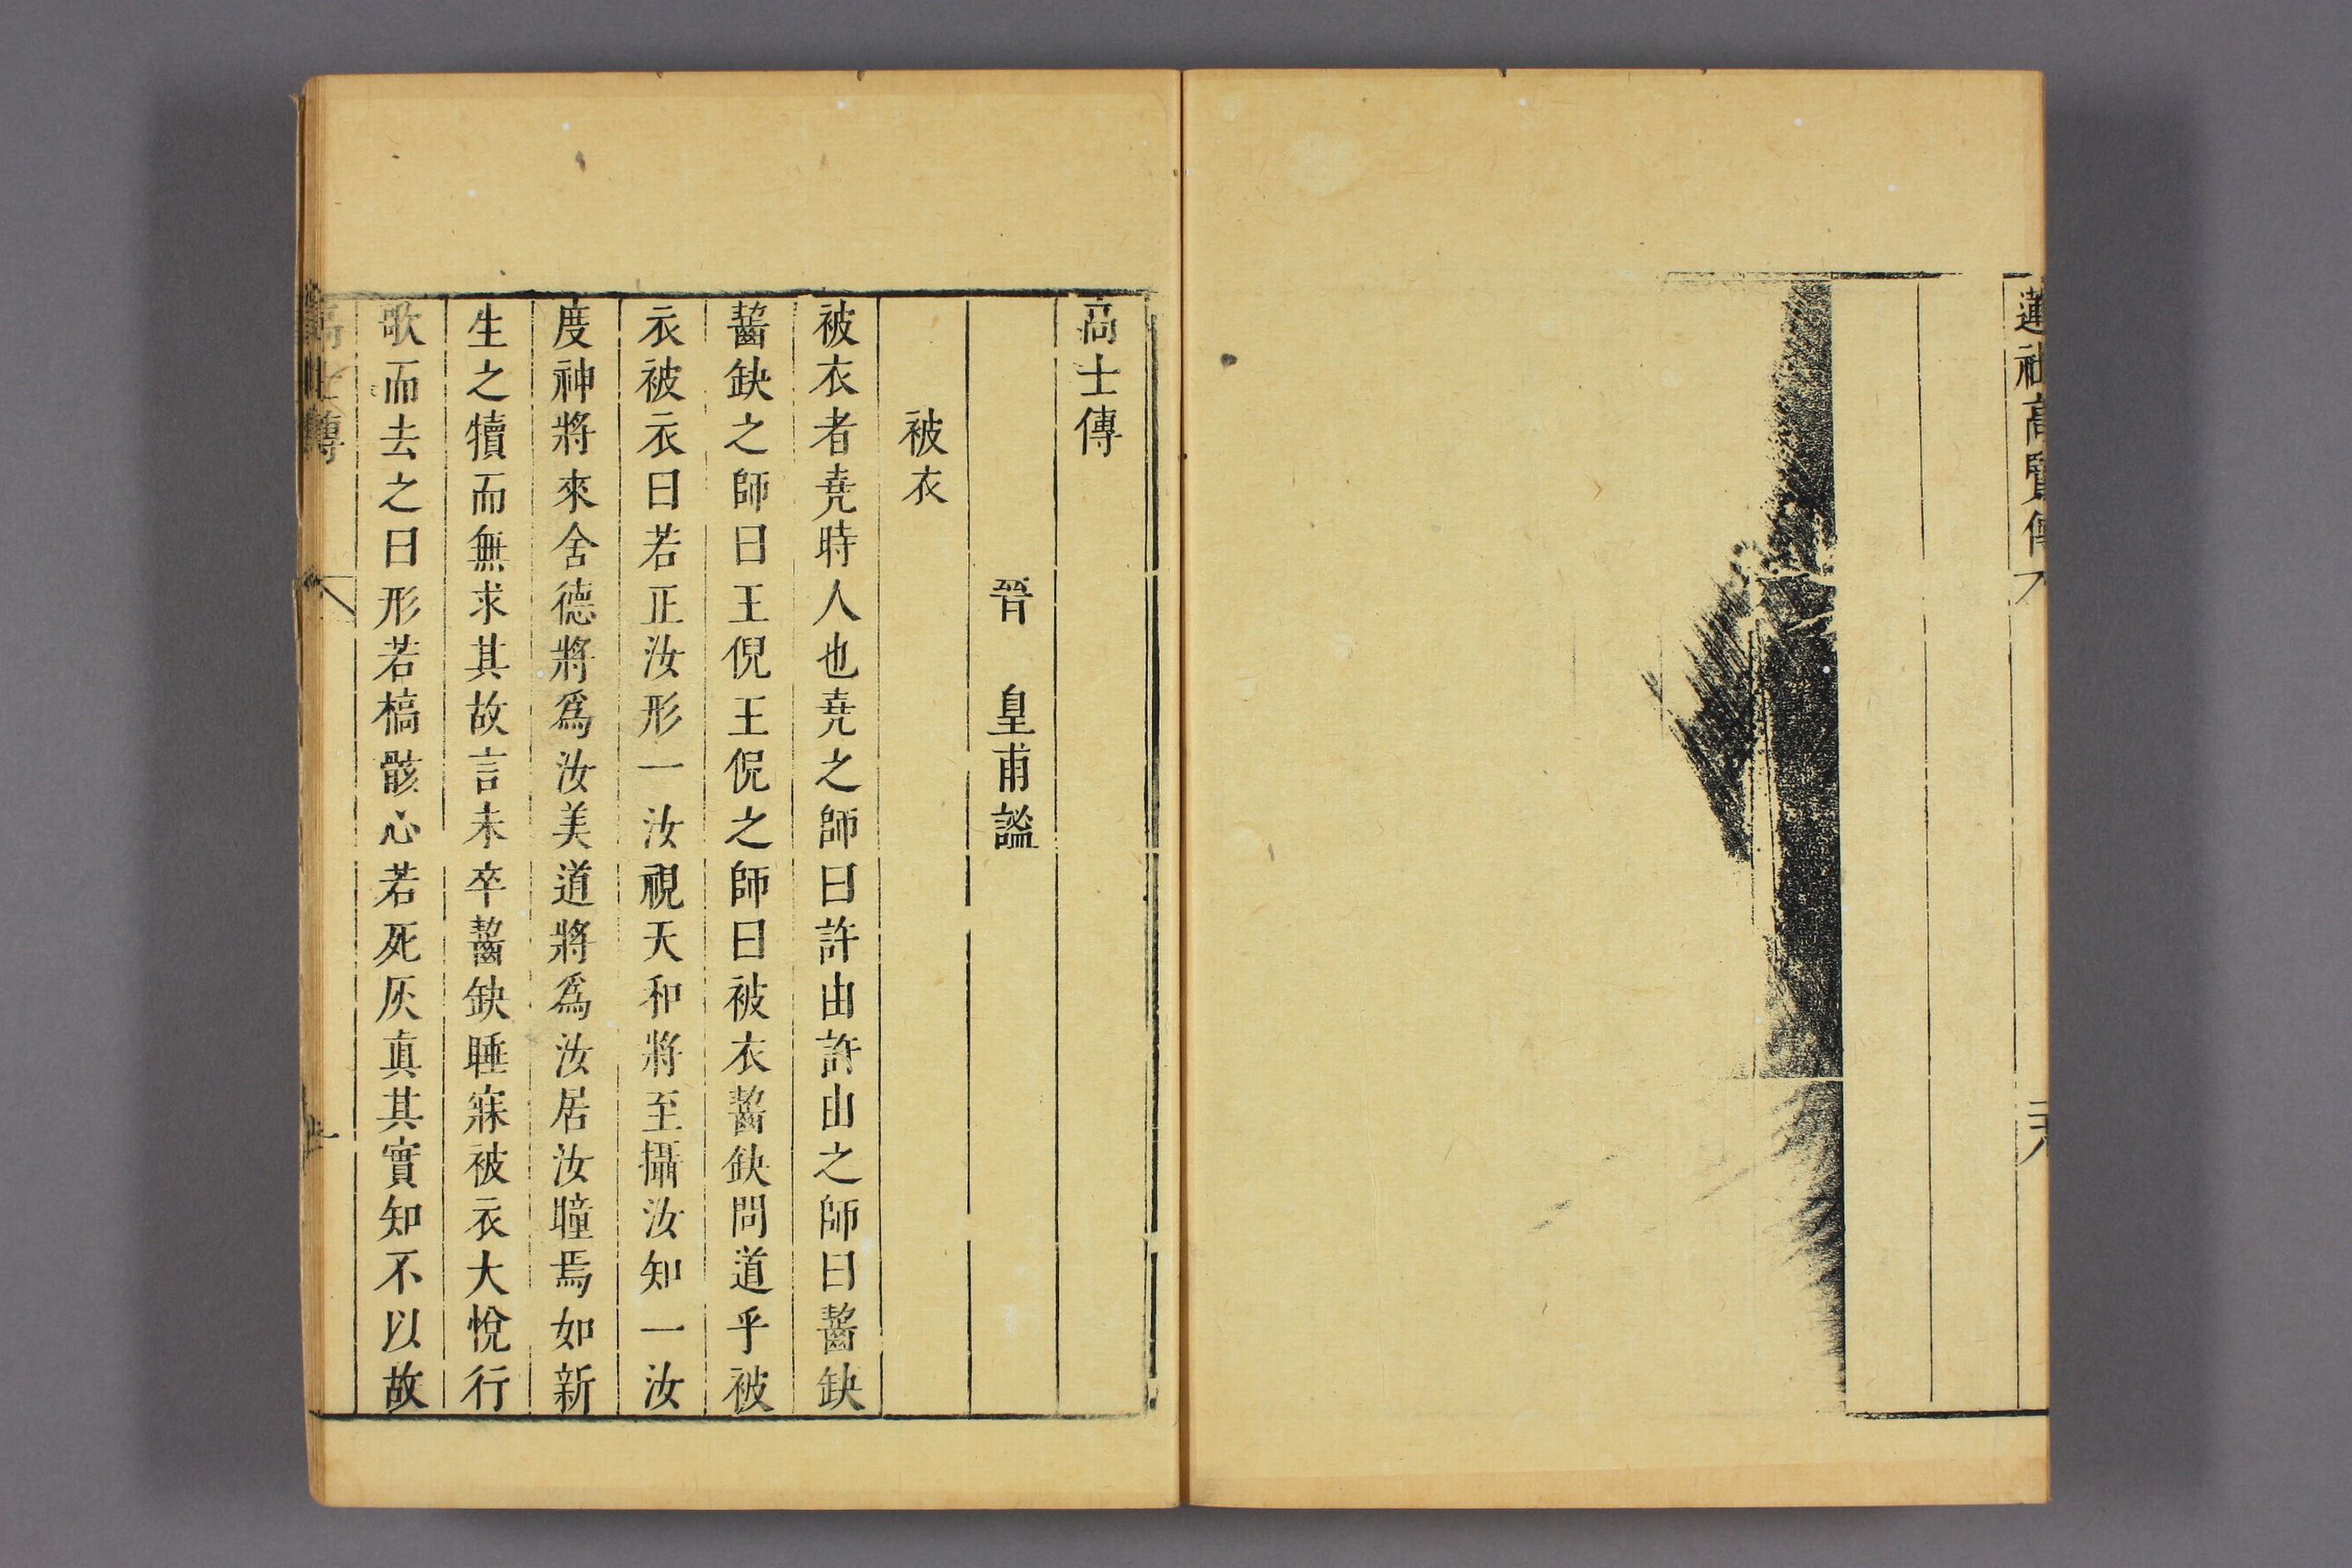 蓮社高賢傳
高士傳
晉 皇甫謐
被衣
被衣者堯時人也堯之師曰許由許由之師曰齧缺
齧缺之師曰王倪王倪之師曰被衣齧缺問道乎被
衣被衣曰若正汝形一汝視天和將至攝汝知一汝
度神將來舍德將爲汝美道將爲汝居汝瞳焉如新
生之犢而無求其故言未卒齧缺睡寐被衣大悅行
歌而去之曰形若槁骸心若死灰真其實知不以故
高士傳